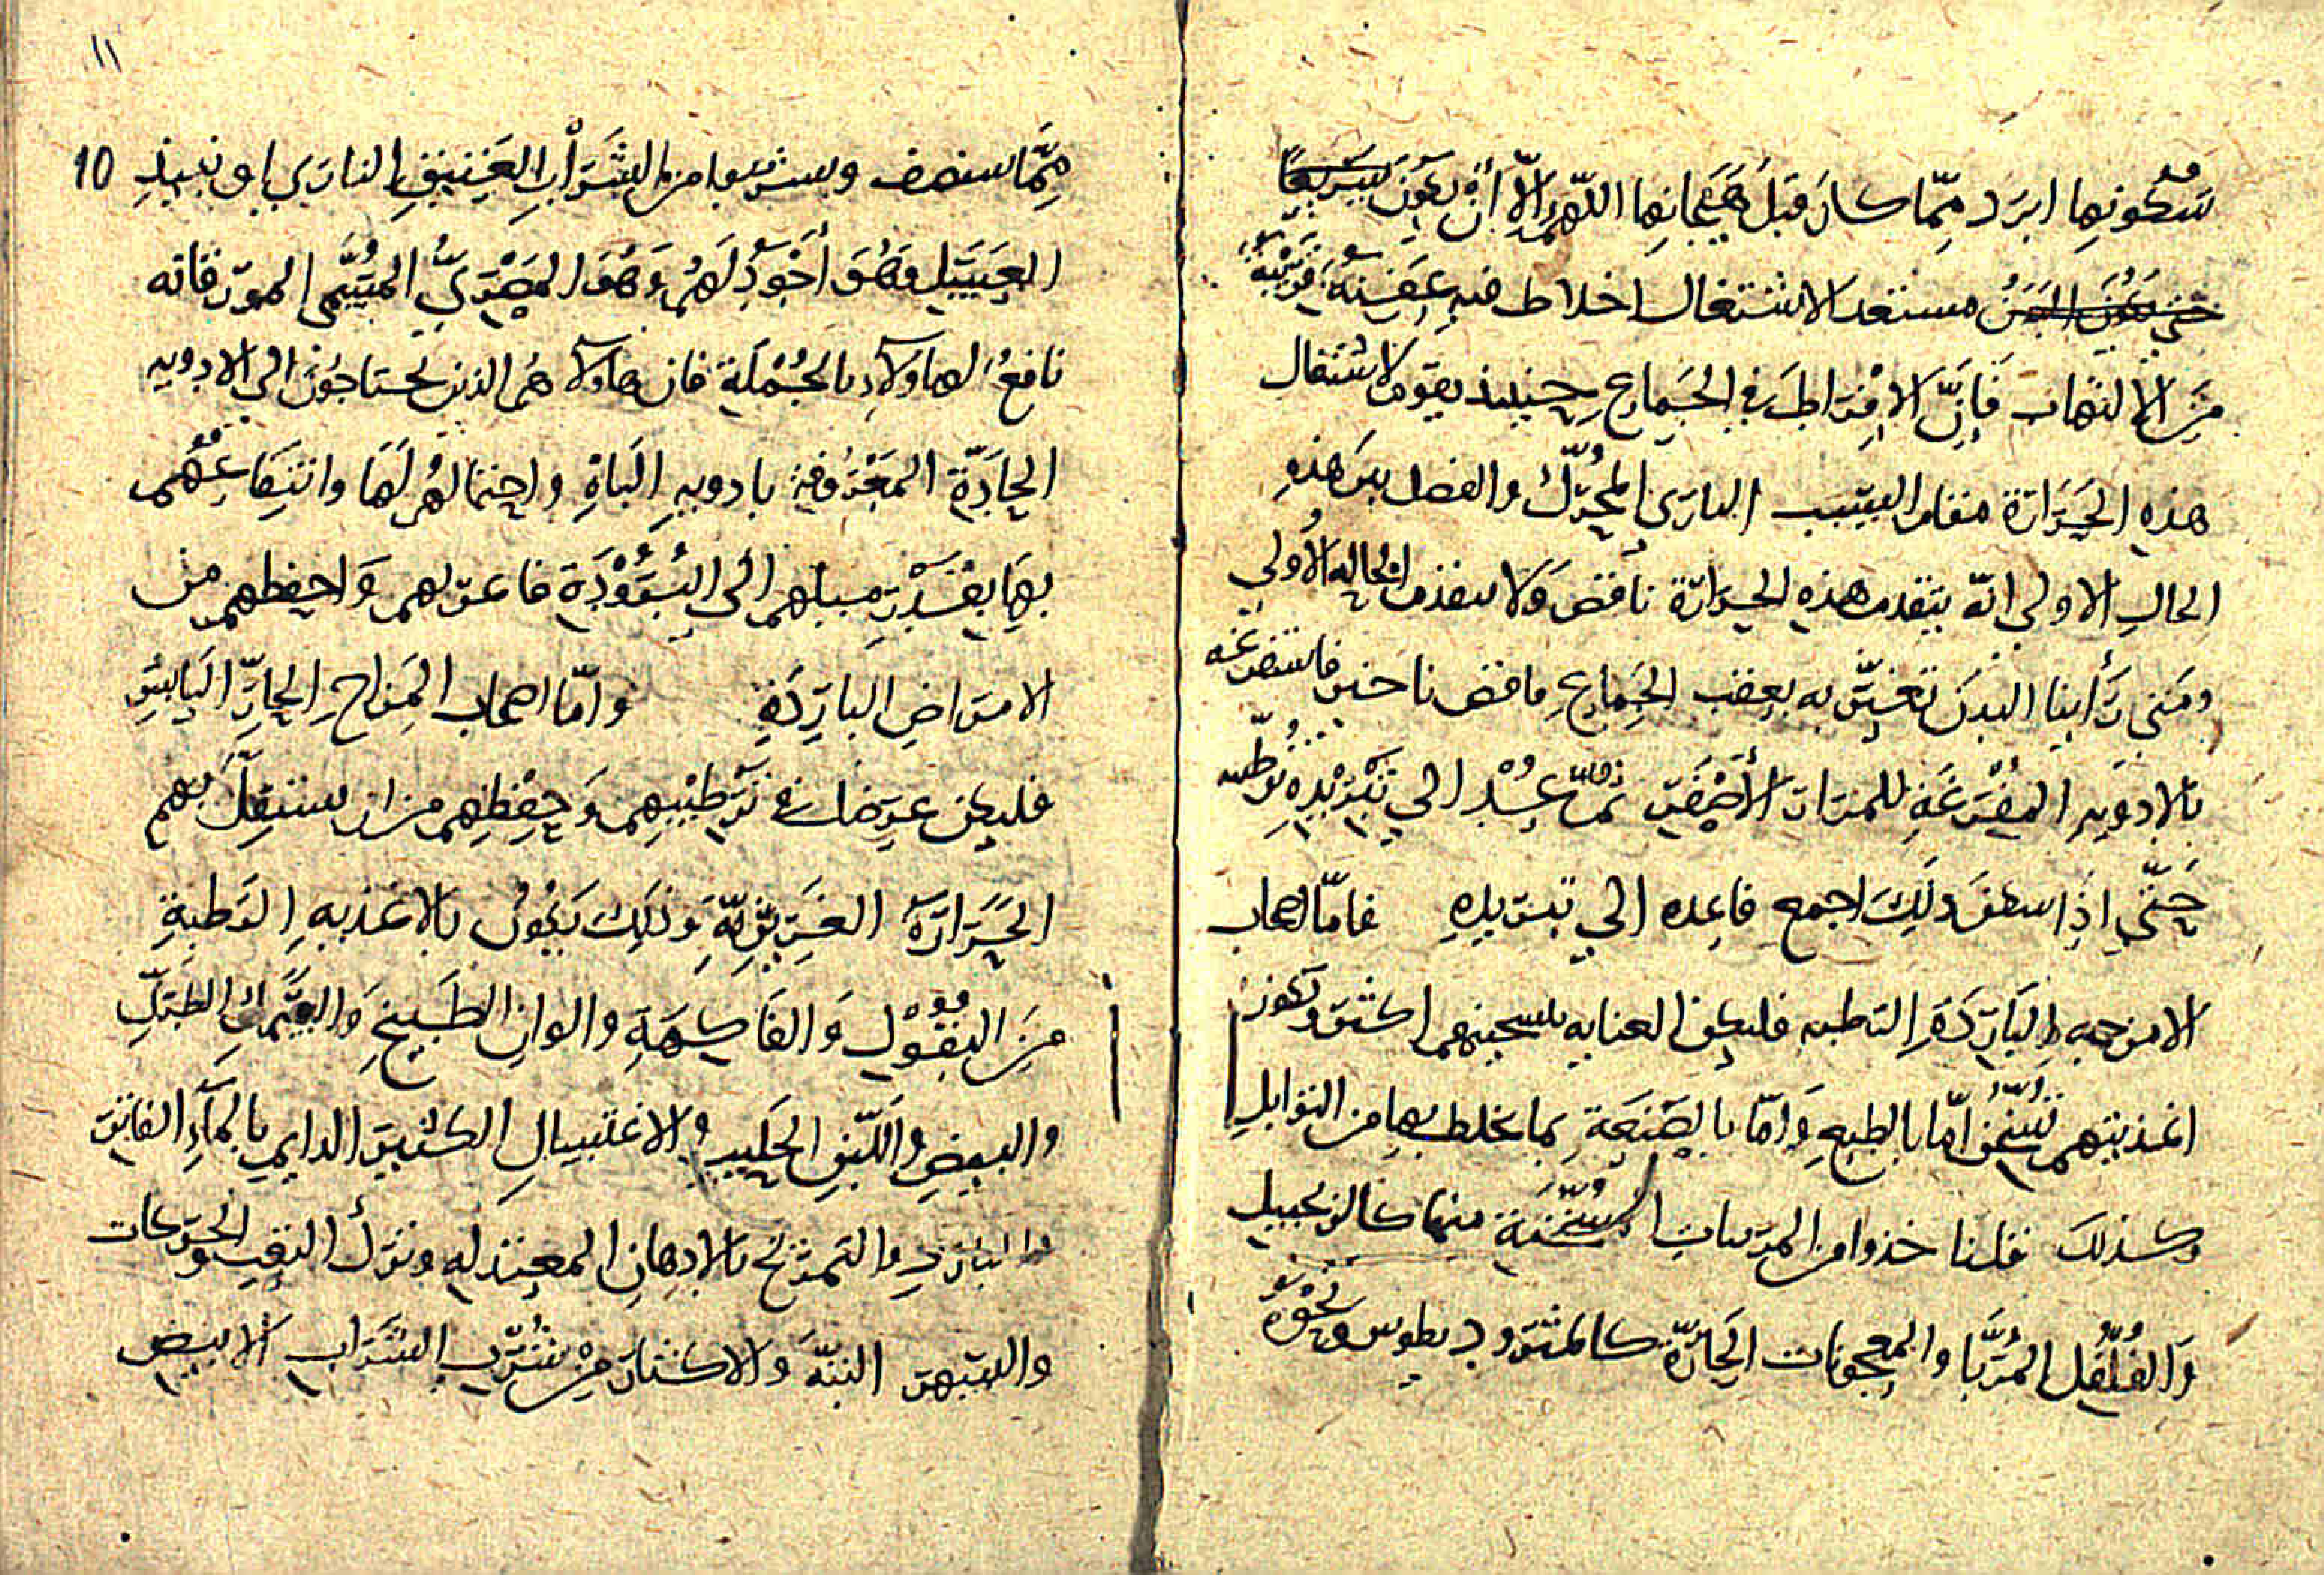 سُكونها ابرد ممّا كان قبل هَيَجانها اللهمّ الّا أن يكون سريعًا
حتى يكون البدن مستعد الاشتغال اخلاط فيه عفنة قريبة
مِنَ الالتهاب فَإِنَّ الافراط في الجماع حينيذ يقوم لاشتغال
هذه الحرارة مقام السبب البادي المحرّك والفصل بين هذه
الحال الاولى انّه يتقدم هذه الحرارة نافض ولا يتقدم الحالة الأولى
ومتى رأينا البدن تغيّر به بعقب الجماع نافض فاستفرغه
بالادوية المفرغة للمرار الأصفر ثمّ عُدْ الى تبريده ترطيبه
حتّى اذا ذلك اجمع فاعده الى تبريده فامّا اصحاب
الامزجة الباردة الرطبة فليكن العناية بتسخينهم اكثر وتكون
اغذيتهم تسخن امّا بالطبع وَامّا بالصّنعة بما يخلط بها من التوابل
وكذلك قلنا خذوا من المربيات المُسَخّنة منها كالزنجبيل
وَالفُلْفُل المُرَبَّا والمعجونات الحارّة كالمثروديطوس ونحوه
١١
10
مِمَّا سنصف ويشربوا من الشراب العتيق الناري او نبيذ
العسل وهُوَ أجْوَد لَهُم وَهُوَ المصري المُسَمَّى المزر فانه
نافعُ لهاولاء بالجُمْلَة فان هاولا هُم الذين يحتاجون الى الادويه
الحَادّة المعروفة بادوية الباه واحتمالهم لَهَا وانتفاعهم
بِهَا بقدر ميلهم الى البُرُوْدَة فاعرّلهم وَاحفظهم من
الامراض الباردة وامّا اصحاب المزاج الحارّ اليابس
فليكن غرضك في ترطيبهم وَحِفْظِهم من ان يستقلّ بهم
الحَرَارَة الغريزيّة وَذلك يكون بالاغذية الرطبة
مِنَ البقُوْل وَالفَاكِهَة والوان الطّبيخ وَالسَّمَك الطَّرِيّ
والبيض واللَّبن الحليب والاغتسال الكثير الدايم بالمآء الفاتر
والبارد والتمرّخ بالادهان المعتدلة وترك التعب والحركات
والسهر البتّة وَالاكثار مِنْ شُرْب الشراب الابيض